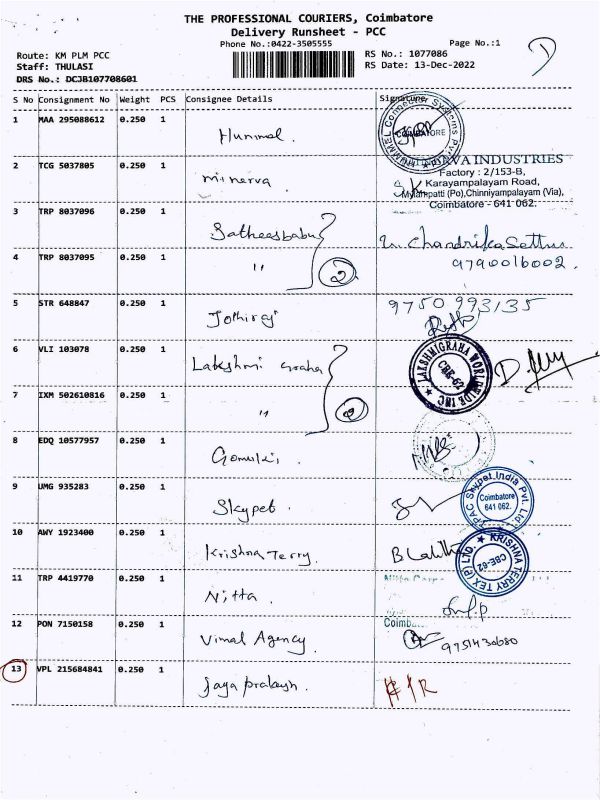 THE PROFESSIONAL COURIERS, Coimbatore
Delivery Runsheet - PCC
Phone No.:0422-3505555
Page No.:1
Route: KM PLM PCC
RS No.: 1077086
Staff: THULASI
RS Date: 13-Dec-2022
DRS No.: DCJB107708601
S No Consignment No Weight PCS Consignee Details Signature
1 MAA 295088612 0.250 1 Hummel.
COIMBATORE
2 TCG 5037805 0.250 1 minerva
INDUSTRIES
Factory : 2/153-B,
Karayampalayam Road,
Mylampatti (Po),Chinniyampalayam (Via),
Coimbatore - 641 062.
3 TRP 8037096 0.250 1 Satheesbabu
4 TRP 8037095 0.250 1 " 2
9790016002.
5 STR 648847 0.250 1 Jothiraj 9750 993135
6 VLI 103078 0.250 1 Lakshmi graha
LAKSHMIGRAHA WORLDWIDE INC
CBE-62
7 IXM 502610816 0.250 1 " 2
8 EDQ 10577957 0.250 1
9 UMG 935283 0.250 1 Skypet.
Skypet India Pvt. Ltd.
Coimbatore
641 062.
10 AWY 1923400 0.250 1 Krishna Terry.
B Lalitha
KRISHNA TERRY TEX (P) LTD.
CBE-62
11 TRP 4419770 0.250 1 Nitta.
12 PON 7150158 0.250 1 Vimal Agency. 9751430680
13 VPL 215684841 0.250 1 Jaya prakash.